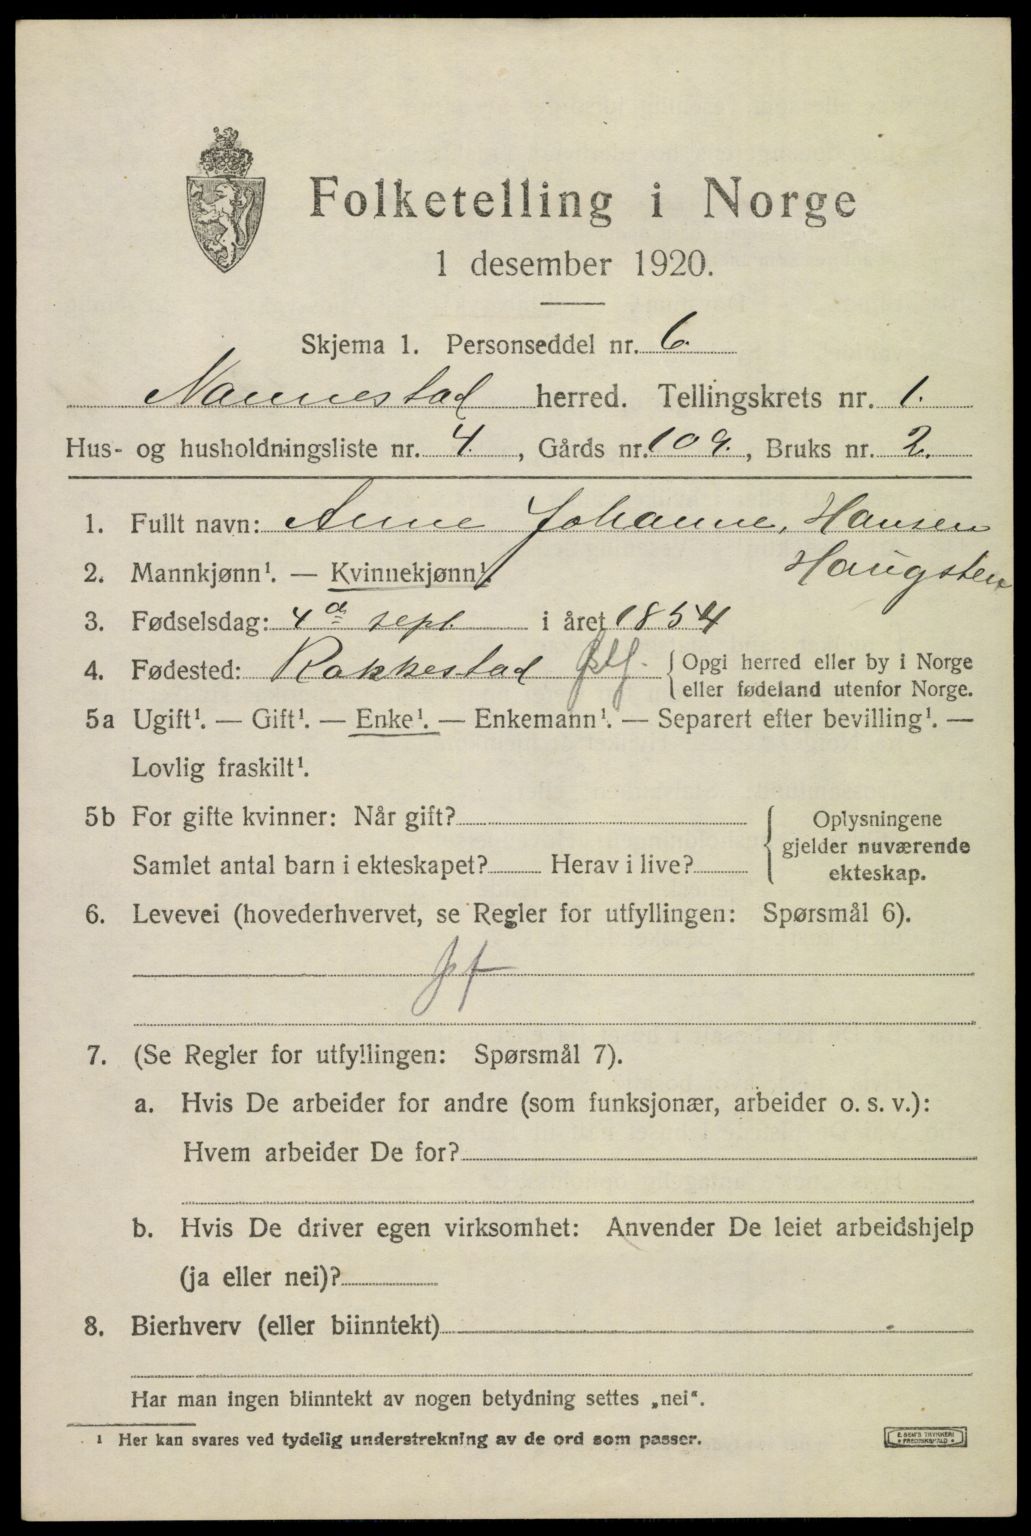 Folketelling i Norge
1 desember 1920.
Skjema 1. Personseddel nr. 6.
Nannestad herred. Tellingskrets nr. 1.
Hus- og husholdningsliste nr. 4. , Gårds nr. 109. , Bruks nr. 2.
1. Fullt navn: Anne Johanne, Hansen
Haugsten
2. Mannkjønn¹. — Kvinnekjønn¹.
3. Fødselsdag: 4de sept. i året 1854
4. Fødested: Rakkestad Østf. { Opgi herred eller by i Norge
eller fødeland utenfor Norge.
5a Ugift¹. — Gift¹. — Enke¹. — Enkemann¹. — Separert efter bevilling¹. —
Lovlig fraskilt¹.
5b For gifte kvinner: Når gift?
Samlet antal barn i ekteskapet? Herav i live?
{ Oplysningene
gjelder nuværende
ekteskap.
6. Levevei (hovederhvervet, se Regler for utfyllingen: Spørsmål 6).
7. (Se Regler for utfyllingen: Spørsmål 7).
a. Hvis De arbeider for andre (som funksjonær, arbeider o. s. v.):
Hvem arbeider De for?
b. Hvis De driver egen virksomhet: Anvender De leiet arbeidshjelp
(ja eller nei)?
8. Bierhverv (eller biinntekt)
Har man ingen biinntekt av nogen betydning settes „nei".
¹ Her kan svares ved tydelig understrekning av de ord som passer.
E. SEM'S TRYKKERI
FREDRIKSHALD